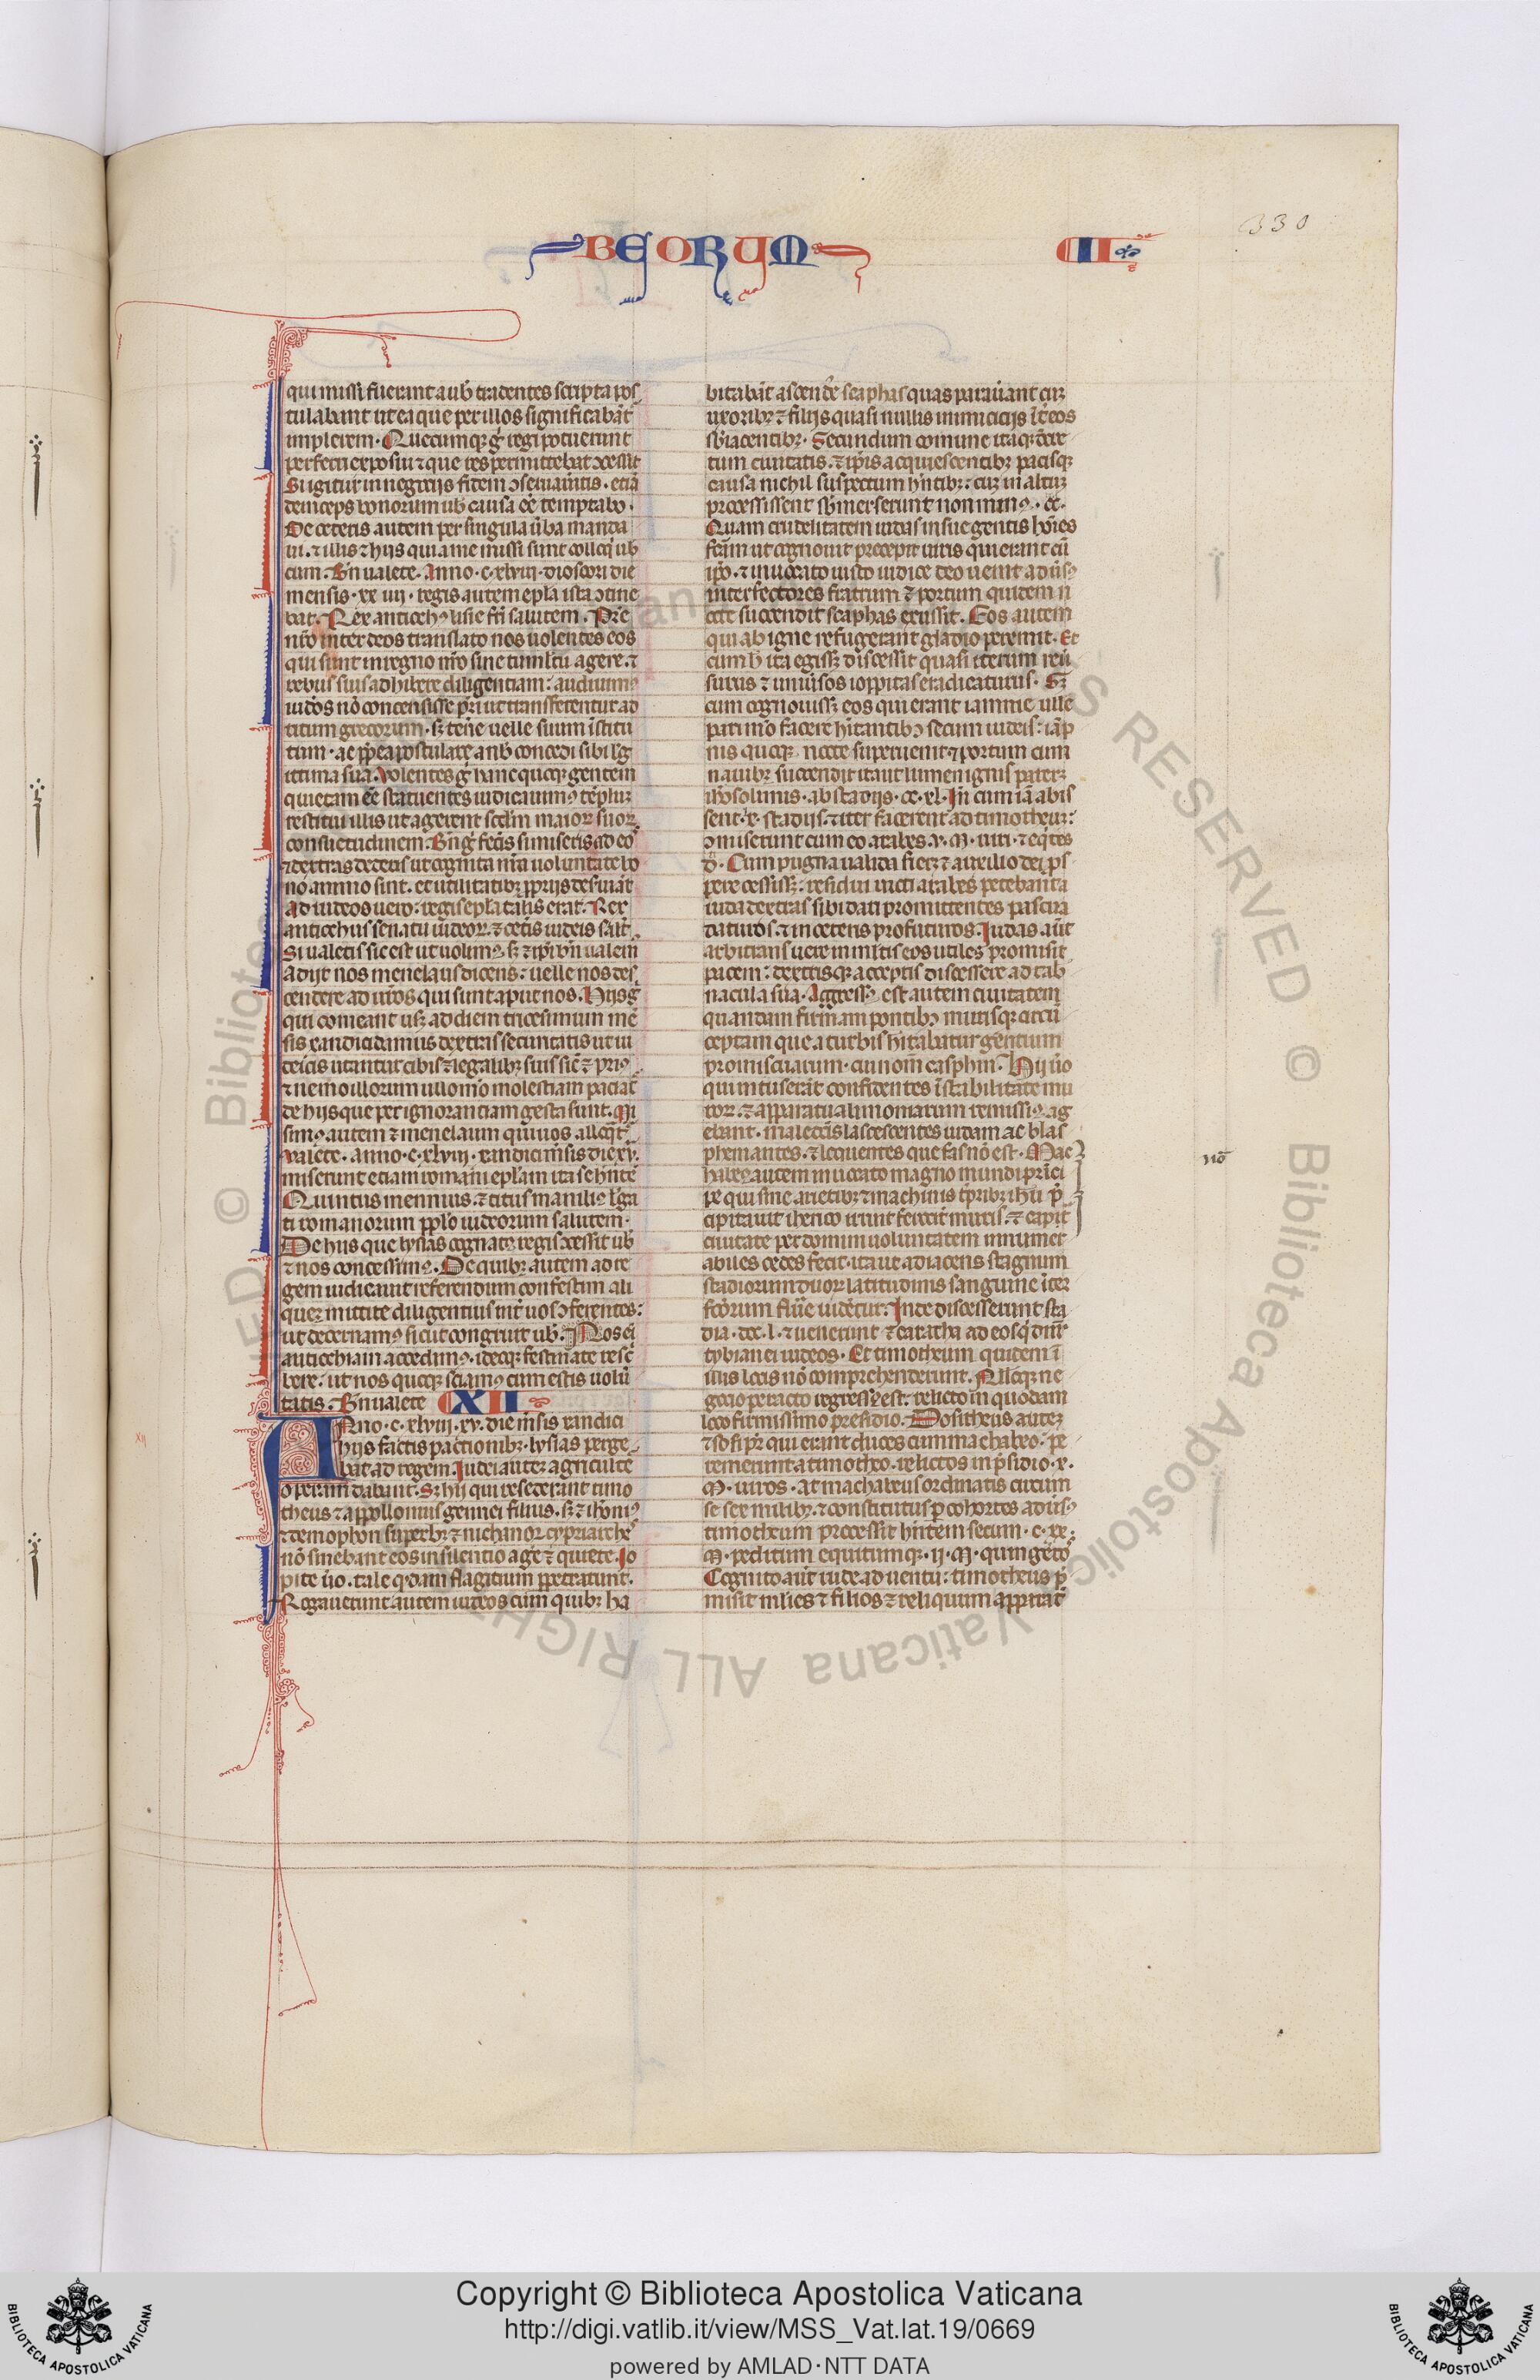 BEORUM
II
330
qui missi fuerant a uob̄ tradentes scripta pos
tulabant ut ea que per illos significabāt
implerem. Quecumq; ḡ regi potuerunt
perferri exposui ⁊ que res permittebat ɔcessit
Si igitur in negociis fidem ɔseruaueritis. etiā
deinceps bonorum uob̄ causa eē temptabo.
De ceteris autem per singula ūba manda
ui. ⁊ illis ⁊ hijs qui a me missi sunt colloq̄ uob̄
cum. Bn̄ ualete. Anno. c. xlviij. dioscori die
mensis. xx iiij. regis autem ep̄la ista ɔtine
bat. Rex antiochꝰ lisie fr̄i salutem. Pr̄e
nr̄o inter deos translato nos uolentes eos
qui sunt in regno nr̄o sine tumltu agere. ⁊
rebus suis adhibere diligentiam: audiuimꝰ
iudeos nō concensisse pr̄i ut transferentur ad
ritum grecorum. sꝫ ten̄e uelle suum īstitu
tum. ac ꝓpt̄ea postulare a nob̄ concedi sibi l̄g
ittima sua. Volentes ḡ hanc quoq; gentem
quietam eē statuentes iudicauimꝰ tēpluꝫ
restitui illis ut agerent scd̄m maioꝝ suoꝝ
consuetudinem. Bn̄ ḡ fec̄is si miseris ad eos
⁊ dextras dederis ut cognita nr̄a uoluntate bo
no animo sint. et utilitatibꝫ ꝓprijs deseruiāt
Ad iudeos uero: regis ep̄la talis erat. Rex
antiochus senatui iudeoꝝ. ⁊ cet̄is iudeis salt̄.
Si ualetis sic est ut uolumꝰ. sꝫ ⁊ ip̄i bn̄ ualemꝰ
Adijt nos menelaus dicens: uelle nos des
cendere ad ur̄os qui sunt aput nos. Hijs ḡ
qui comeant usꝫ ad diem tricesimum mē
sis xandici damus dextras securitatis ut iu
dei cis utantur cibis ⁊ legalibꝫ suis sic̄ ⁊ priꝰ
⁊ nemo illorum ullo mō molestiam paciat̄
de hijs que per ignorantiam gesta sunt. Mi
simꝰ autem ⁊ menelaum qui uos alloq̄t̄
Valete. anno. c. xlviij. xandici m̄sis die xv.
miserunt etiam romani ep̄lam ita se hn̄tē
Quintus menuius. ⁊ titus manilius lega
ti romanorum ppl̄o iudeorum salutem.
De hijs que lysias cognatꝰ regis ɔcessit uob̄
⁊ nos concessimꝰ. De quibꝫ autem ad re
gem iudicauit referendum confestim ali
queꝫ mittite diligentius int̄ uos ɔferentes:
ut decernamꝰ sicut congruit uob̄. Nos ei̅
antiochiam accedimꝰ. ideoq; festinate resc̄
bere: ut nos quoq; sciamꝰ cuius estis uolū
tatis. Bn̄ ualete XII
ANno. c. xlviij. xv. die m̄sis xandici
hijs factis pactionibꝫ. lysias perge
bat ad regem. Iudei auteꝫ agriculte
operam dabant. Sꝫ hij qui resederant timo
theus ⁊ appollonius gennei filius. sꝫ ⁊ iheronimꝰ
⁊ demophon superbꝰ. ⁊ nichanor cypriarches
nō sinebant eos in silentio age ⁊ quiete. Io
pite ūo. tale q̄ddam flagitium ꝑpetrarunt.
Rogauerunt autem iudeos cum quibꝫ ha
bitabāt ascendere scaphas quas parauerant cuꝫ
uxoribꝫ ⁊ filijs quasi nullis inimicicijs int̄ eos
sb̄iacentibꝫ. Secundum comune itaq; decre
tum ciuitatis. ⁊ ip̄is acquiescentibꝫ pacisq;
causa nichil suspectum hn̄tibꝫ: cuꝫ in altuꝫ
processissent sb̄merserunt non minꝰ. cc.
Quam crudelitatem iudas in sue gentis hoīes
fcām ut cognouit precepit uiris qui erant cū
ip̄o. ⁊ inuocato iusto iudice deo uenit aduersꝰ
interfectores fratrum ⁊ portum quidem n
octe succendit scaphas exussit. Eos autem
qui ab igne refugerant gladio peremit. Et
cum h̄ ita egissꝫ discessit quasi iterum reū
surus ⁊ uniūsos ioppitas eradicaturus. Sꝫ
cum cognouissꝫ eos qui erant iamnie uelle
pari mō facere hitantibꝰ secum iudeis: iāp
nis quoq; nocte superuenit ⁊ portum cum
nauibꝫ succendit ita ut lumen ignis patereꝫ
ih̄rosolimis. ab stadijs. cc. xl. In cum iā abis
sent. x. stadijs. ⁊ iter facerent ad timotheuꝫ:
ɔmiserunt cum eo. arabes. v. M. uiri. ⁊ eq̄tes
d̄. Cum pugna ualida fieret ⁊ auxilio dei ꝓs
pere cessissꝫ: residui uicti arabes petebant a
iuda dextras sibi dari promittentes pascua
daturos. ⁊ in ceteris profuturos. Iudas aūt
arbitrans uere in ml̄tis eos utiles promisit
pacem: dextrisq; acceptis discessere ad tab
nacula sua. Aggressꝰ est autem ciuitatem
quandam firmam pontibꝰ murisq; circū
ceptam que a turbis hitabatur gentium
promiscuarum. cui nom̄ casphin. Hij ūo
qui intus erāt confidentes ī stabilitate mu
roꝝ. ⁊ apparatu alimoniarum remissiꝰ ag
ebant. maledc̄is lascescentes iudam ac blas
phemantes. ⁊ loquentes que fas nō est. Mac
habeꝰ autem inuocato magno mundi prīci
pe qui sine arietibꝫ ⁊ machinis tꝑribꝫ ihū p̄
cipitauit iherico irruit ferocit̄ muris. ⁊ capit
ciuitate per domini uoluntatem innumer
abiles cedes fecit. ita ut adiacens stagnum
stadiorum duoꝝ latitudinis sanguine īter
fcōrum fluē uideretur. Inde discesserunt sta
dia. dcc. l. ⁊ uenerunt ⁊ caracha ad eos q̄ dn̄r
tybianei iudeos. Et timotheum quidem ī
illis locis nō comprehenderunt. Nulloq; ne
gocio peracto regressꝰ est. relicto in quodam
loco firmissimo presidio. Dositheus auteꝫ
⁊ sosipꝫ qui erant duces cum machabeo: pe
remerunt a timotheo. relictos in p̄sidio. x.
M. uiros. At machabeus ordinatis circum
se sex milibꝫ. ⁊ constitutus ꝑ cohortes aduersꝰ
timotheum processit hn̄tem secum. c. xx.
M. peditum equitumq;. ij. M. quingētos
Cognito aūt iude aduentu: timotheus p̄
misit ml̄ies ⁊ filios ⁊ reliquum apparat̄
nō
XII
Copyright © Biblioteca Apostolica Vaticana
http://digi.vatlib.it/view/MSS_Vat.lat.19/0669
powered by AMLAD·NTT DATA
BIBLIOTECA APOSTOLICA VATICANA
BIBLIOTECA APOSTOLICA VATICANA